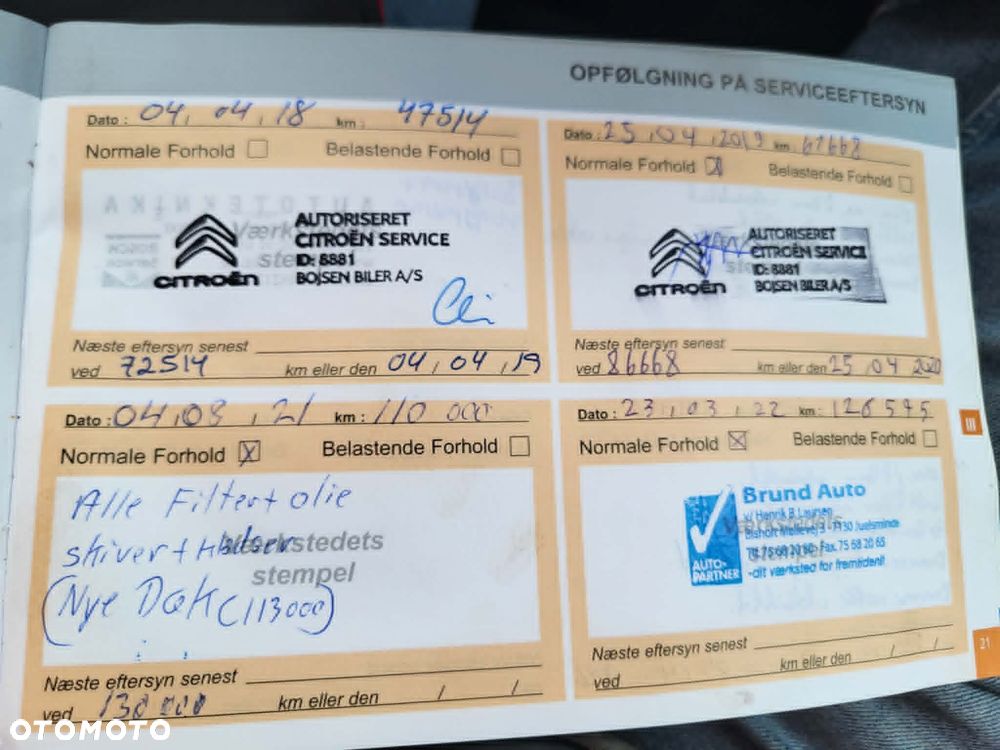 OPFØLGNING PÅ SERVICEEFTERSYN
Dato : 04, 04, 18 km : 47514
Normale Forhold Belastende Forhold
Værkstedets
stempel
CITROËN
AUTORISERET
CITROËN SERVICE
ID: 8881
BOJSEN BILER A/S
Næste eftersyn senest
ved 72514 km eller den 04, 04, 19
Dato : 25, 04, 2019 km 61668
Normale Forhold Belastende Forhold
CITROËN
AUTORISERET
CITROËN SERVICE
ID: 8881
BOJSEN BILER A/S
Næste eftersyn senest
ved 86668 km eller den 25, 04 2020
Dato : 04, 08, 21 km : 110 000
Normale Forhold X Belastende Forhold
Alle Filter+ olie
skiver+
Værkstedets
stempel
(Nye Dæk (113000)
Næste eftersyn senest
ved 130 000 km eller den / /
Dato : 23, 03, 22 km : 126595
Normale Forhold X Belastende Forhold
AUTO-
PARTNER
Brund Auto
v/ Henrik B. Laursen
7130 Juelsminde
Tlf. 75 68 20 60 · Fax. 75 68 20 65
-dit værksted for fremtiden!!
Værkstedets
stempel
Næste eftersyn senest
ved km eller den / /
III
21
OTOMOTO